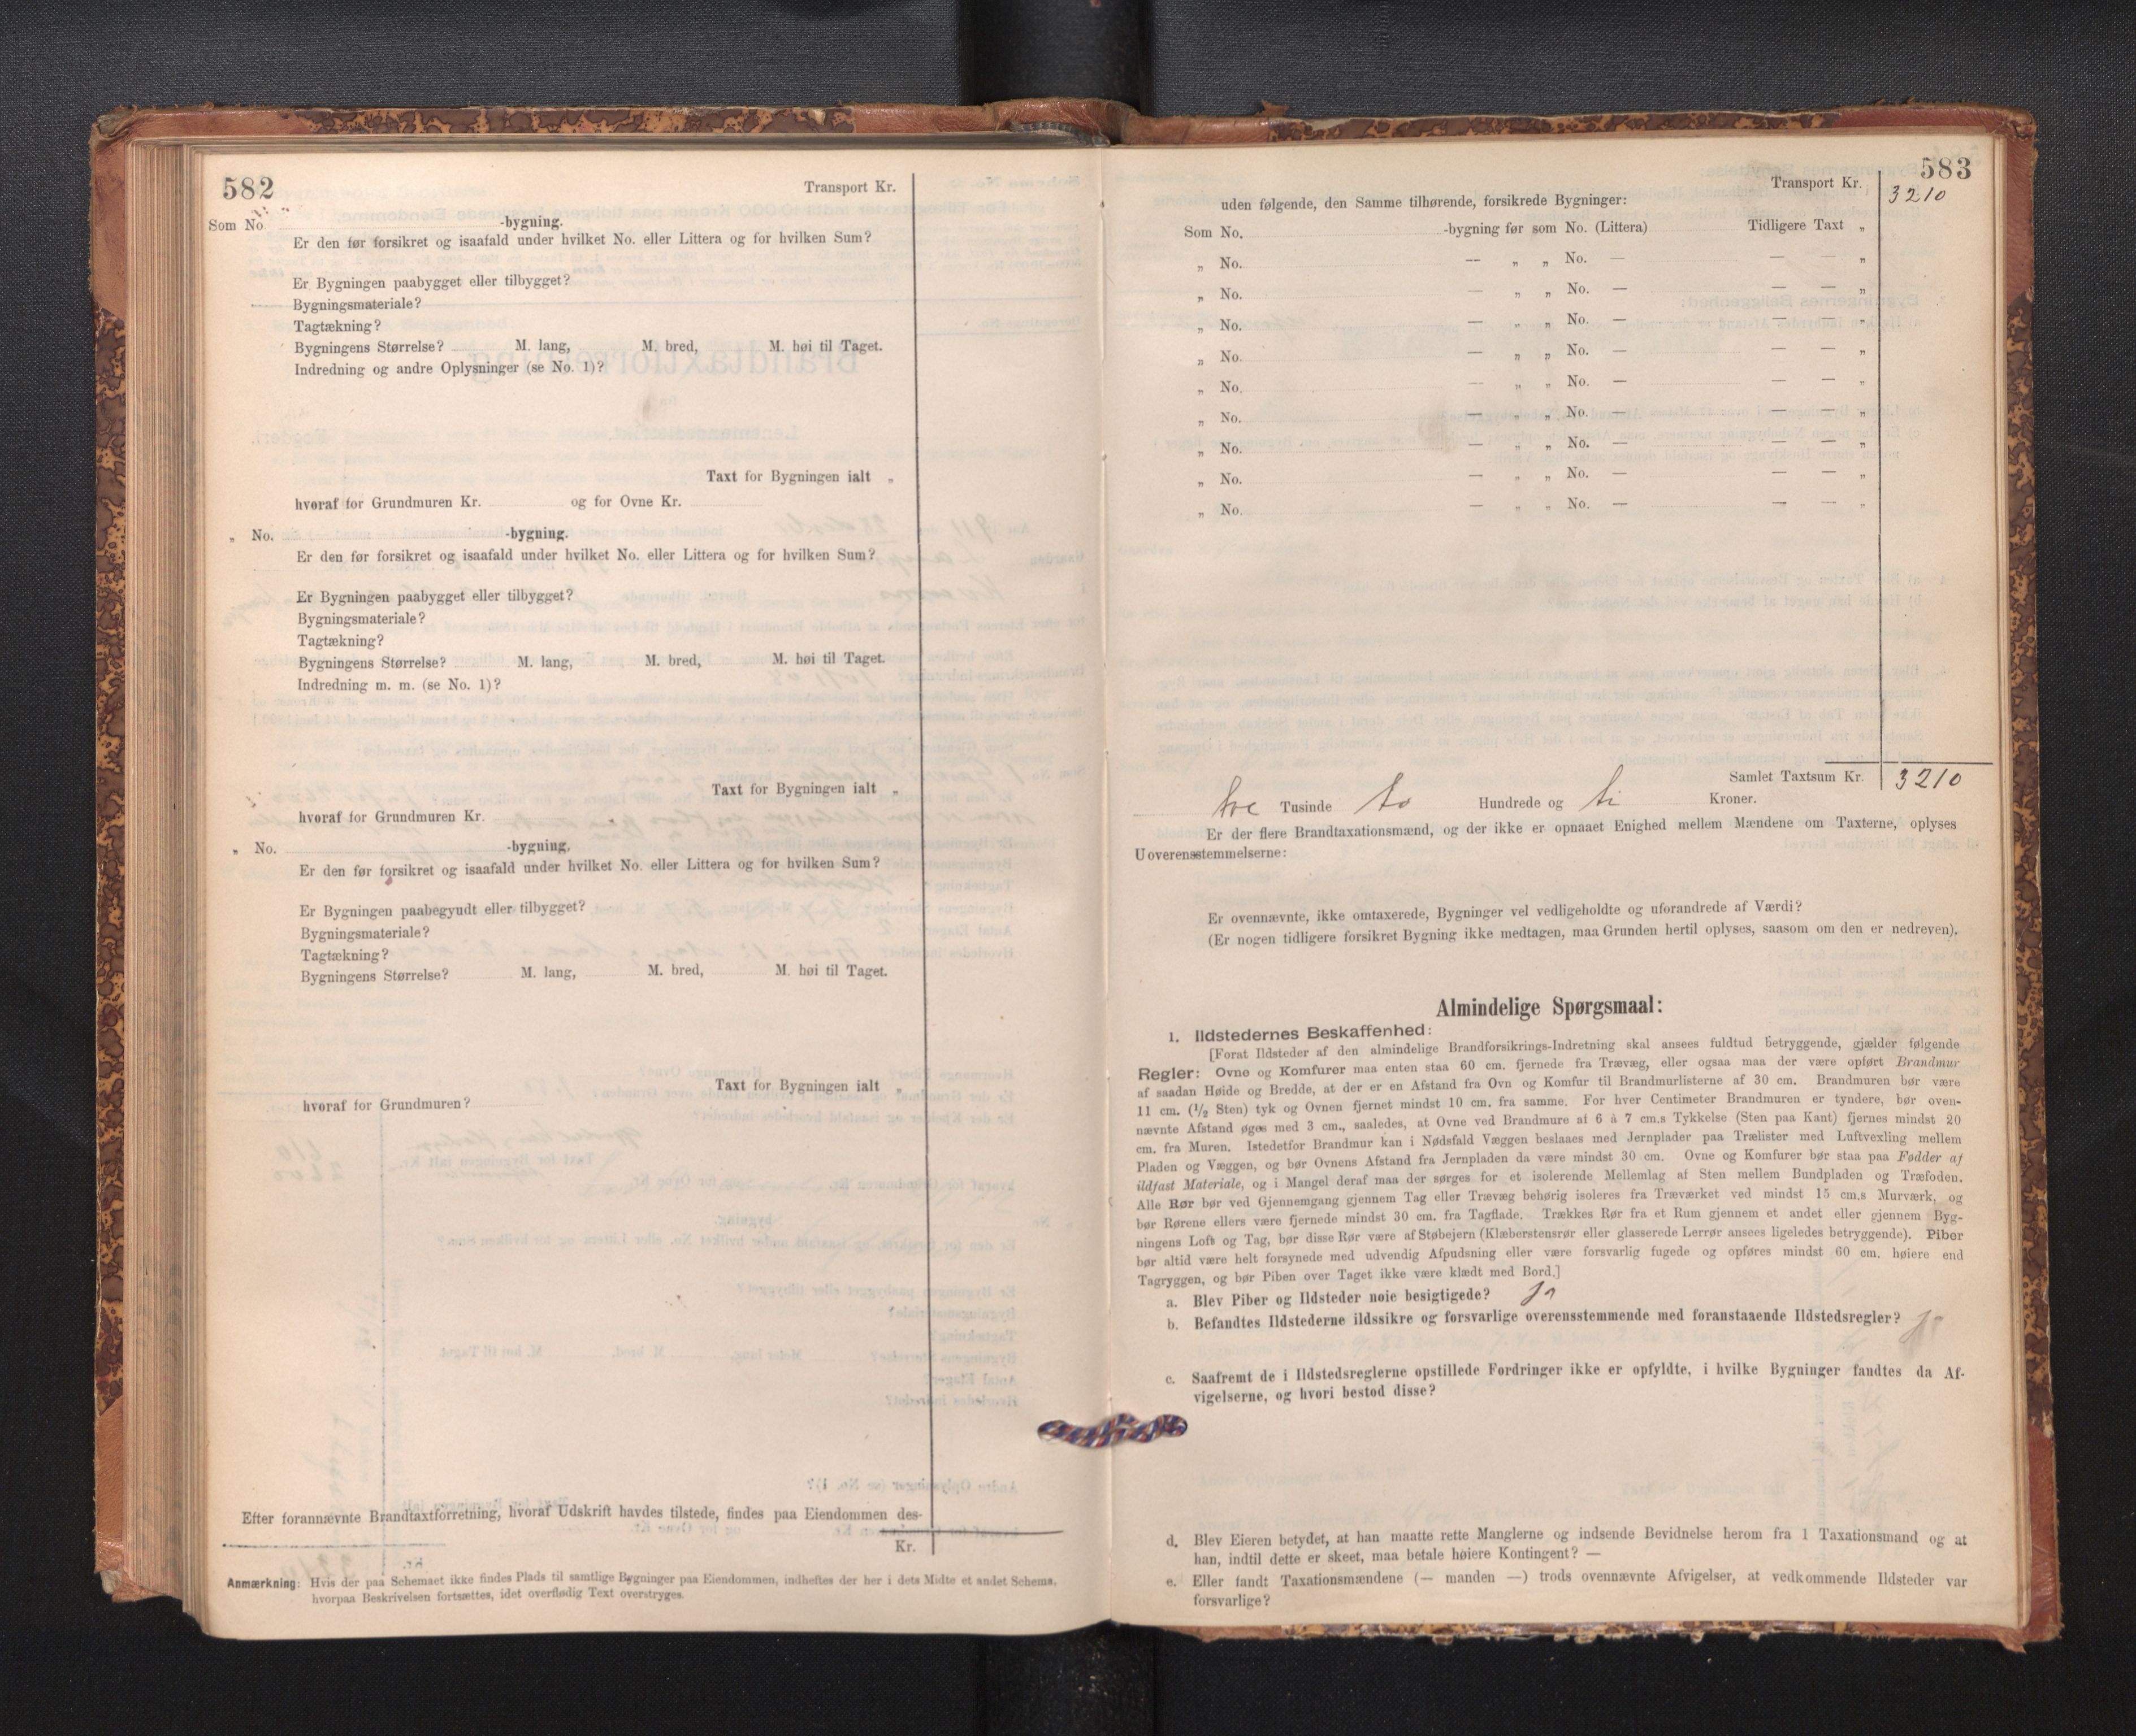 582
Transport Kr.
Som No. -bygning.
Er den før forsikret og isaafald under hvilket No. eller Littera og for hvilken Sum?
Er Bygningen paabygget eller tilbygget?
Bygningsmateriale?
Tagtækning?
Bygningens Størrelse? M. lang, M. bred, M. høi til Taget.
Indredning og andre Oplysninger (se No. 1)?
Taxt for Bygningen ialt „
hvoraf for Grundmuren Kr. og for Ovne Kr.
„ No. -bygning.
Er den før forsikret og isaafald under hvilket No. eller Littera og for hvilken Sum?
Er Bygningen paabygget eller tilbygget?
Bygningsmateriale?
Tagtækning?
Bygningens Størrelse? M. lang, M. bred, M. høi til Taget.
Indredning m. m. (se No. 1)?
Taxt for Bygningen ialt „
hvoraf for Grundmuren Kr.
„ No. -bygning.
Er den før forsikret og isaafald under hvilket No. eller Littera og for hvilken Sum?
Er Bygningen paabegyndt eller tilbygget?
Bygningsmateriale?
Tagtækning?
Bygningens Størrelse? M. lang, M. bred, M. høi til Taget.
Taxt for Bygningen ialt „
hvoraf for Grundmuren?
Efter forannævnte Brandtaxtforretning, hvoraf Udskrift havdes tilstede, findes paa Eiendommen des-
Kr.
Anmærkning: Hvis der paa Schemaet ikke findes Plads til samtlige Bygninger paa Eiendommen, indheftes der her i dets Midte et andet Schema,
hvorpaa Beskrivelsen fortsættes, idet overflødig Text overstryges.
583
Transport Kr. 3210
uden følgende, den Samme tilhørende, forsikrede Bygninger:
Som No. -bygning før som No. (Littera) Tidligere Taxt „
„ No. — „ „ No. — — — „
„ No. — „ „ No. — — — „
„ No. — „ „ No. — — — „
„ No. — „ „ No. — — — „
„ No. — „ „ No. — — — „
„ No. — „ „ No. — — — „
„ No. — „ „ No. — — — „
„ No. — „ „ No. — — — „
„ No. — „ „ No. — — — „
Samlet Taxtsum Kr. 3210
tre Tusinde to Hundrede og ti Kroner.
Er der flere Brandtaxationsmænd, og der ikke er opnaaet Enighed mellem Mændene om Taxterne, oplyses
Uoverensstemmelserne:
Er ovennævnte, ikke omtaxerede, Bygninger vel vedligeholdte og uforandrede af Værdi?
(Er nogen tidligere forsikret Bygning ikke medtagen, maa Grunden hertil oplyses, saasom om den er nedreven).
Almindelige Spørgsmaal:
1. Ildstedernes Beskaffenhed:
[Forat Ildsteder af den almindelige Brandforsikrings-Indretning skal ansees fuldtud betryggende, gjælder følgende
Regler: Ovne og Komfurer maa enten staa 60 cm. fjernede fra Trævæg, eller ogsaa maa der være opført Brandmur
af saadan Høide og Bredde, at der er en Afstand fra Ovn og Komfur til Brandmurlisterne af 30 cm. Brandmuren bør være
11 cm. (1/2 Sten) tyk og Ovnen fjernet mindst 10 cm. fra samme. For hver Centimeter Brandmuren er tyndere, bør oven-
nævnte Afstand øges med 3 cm., saaledes, at Ovne ved Brandmure af 6 à 7 cm.s Tykkelse (Sten paa Kant) fjernes mindst 20
cm. fra Muren. Istedetfor Brandmur kan i Nødsfald Væggen beslaaes med Jernplader paa Trælister med Luftvexling mellem
Pladen og Væggen, og bør Ovnens Afstand fra Jernpladen da være mindst 30 cm. Ovne og Komfurer bør staa paa Fødder af
ildfast Materiale, og i Mangel deraf maa der sørges for et isolerende Mellemlag af Sten mellem Bundpladen og Træfoden.
Alle Rør bør ved Gjennemgang gjennem Tag eller Trævæg behørig isoleres fra Træværket ved mindst 15 cm.s Murværk, og
bør Rørene ellers være fjernede mindst 30 cm. fra Tagflade. Trækkes Rør fra et Rum gjennem et andet eller gjennem Byg-
ningens Loft og Tag, bør disse Rør være af Støbejern (Klæberstensrør eller glasserede Lerrør ansees ligeledes betryggende). Piber
bør altid være helt forsynede med udvendig Afpudsning eller være forsvarlig fugede og opføres mindst 60 cm. høiere end
Tagryggen, og bør Piben over Taget ikke være klædt med Bord.]
a. Blev Piber og Ildsteder nøie besigtigede? Ja
b. Befandtes Ildstederne ildssikre og forsvarlige overensstemmende med foranstaaende Ildstedsregler? Ja
c. Saafremt de i Ildstedsreglerne opstillede Fordringer ikke er opfyldte, i hvilke Bygninger fandtes da Af-
vigelserne, og hvori bestod disse?
d. Blev Eieren betydet, at han maatte rette Manglerne og indsende Bevidnelse herom fra 1 Taxationsmand og at
han, indtil dette er skeet, maa betale høiere Kontingent? —
e. Eller fandt Taxationsmændene (— manden —) trods ovennævnte Afvigelser, at vedkommende Ildsteder var
forsvarlige?